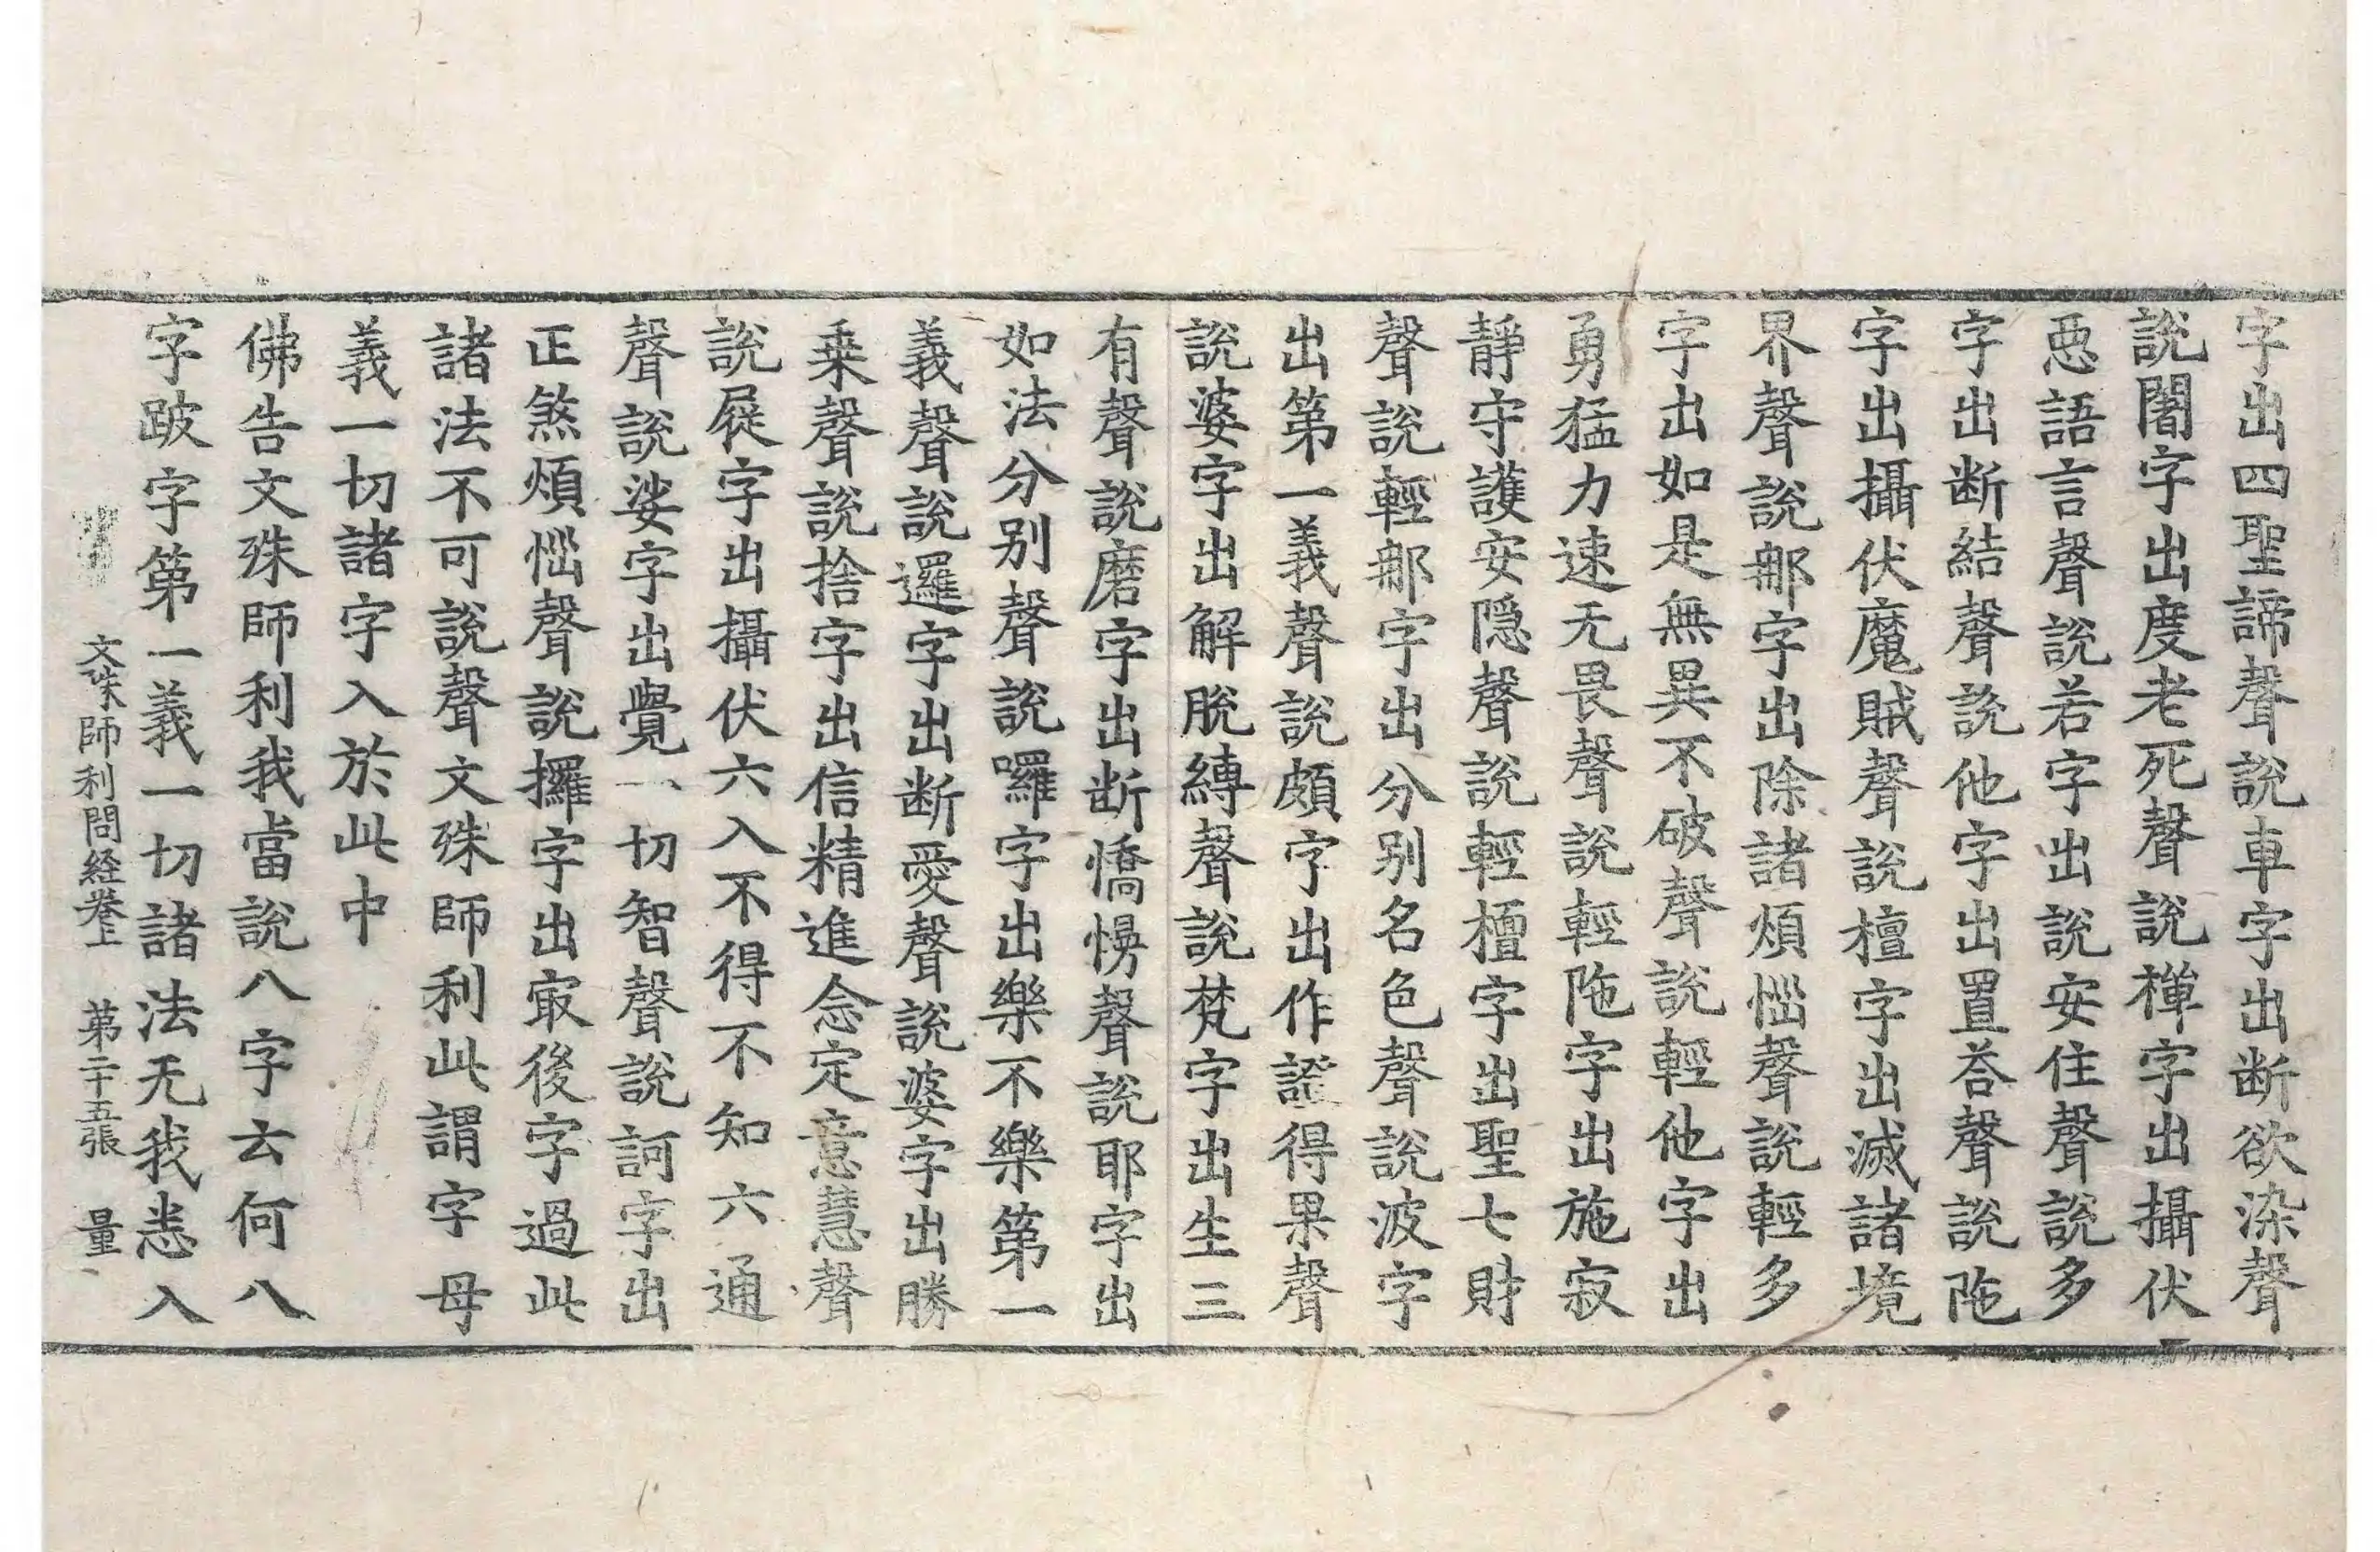 字出四聖諦聲說車字出断欲染聲
說闍字出度老死聲說禪字出攝伏
惡語言聲說若字出說安住聲說多
字出断結聲說他字出置荅聲說陁
字出攝伏魔賊聲說檀字出滅諸境
界聲說那字出除諸煩惱聲說輕多
字出如是無異不破聲說輕他字出
勇猛力速无畏聲說輕陁字出施寂
靜守護安隱聲說輕檀字出聖七財
聲說輕那字出分别名色聲說波字
出第一義聲說頗字出作證得果聲
說婆字出解脫縛聲說梵字出生三
有聲說磨字出断憍慢聲說耶字出
如法分别聲說囉字出樂不樂第一
義聲說邏字出断愛聲說婆字出勝
乗聲說捨字出信精進念定意慧聲
說屣字出攝伏六入不得不知六通
聲說娑字出覺一切智聲說訶字出
正煞煩惱聲說攞字出冣後字過此
諸法不可說聲文殊師利此謂字母
義一切諸字入於此中
佛告文殊師利我當說八字云何八
字跛字第一義一切諸法无我悉入
文殊師利問経卷上　第二十五張　量